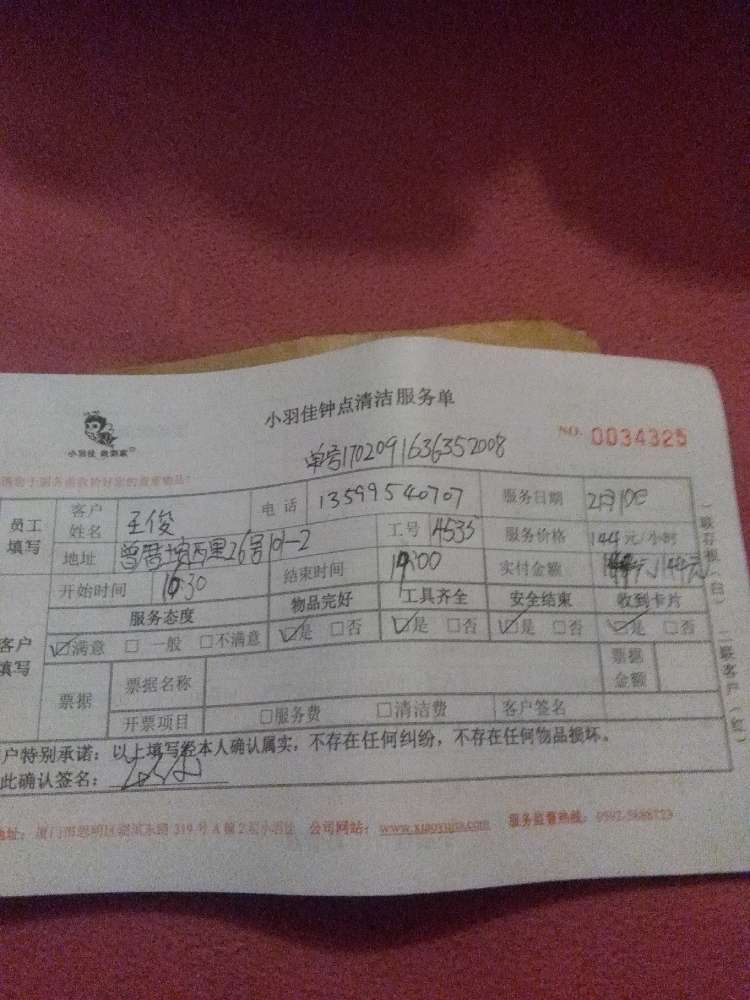 小羽佳钟点清洁服务单
小羽佳 做到家
NO. 0034325
单号1702091636352008
员工填写 客户姓名 王俊 电话 13599540707 服务日期 2月10日
地址 曾厝垵西里26号101-2 工号 A535 服务价格 144元/小时
客户填写 开始时间 :30 结束时间 :00 实付金额 144元
服务态度 物品完好 工具齐全 安全结束 收到卡片
☑满意 □一般 □不满意 ☑是 □否 ☑是 □否 ☑是 □否 ☑是 □否
票据 票据名称 票据金额
开票项目 □服务费 □清洁费 客户签名
户特别承诺：以上填写经本人确认属实，不存在任何纠纷，不存在任何物品损坏。
此确认签名：
地址：厦门市思明区 319号A幢2层小羽佳 公司网站：www.xiaoyujia.com 服务监督热线：
一联存根（白）
二联客户（红）